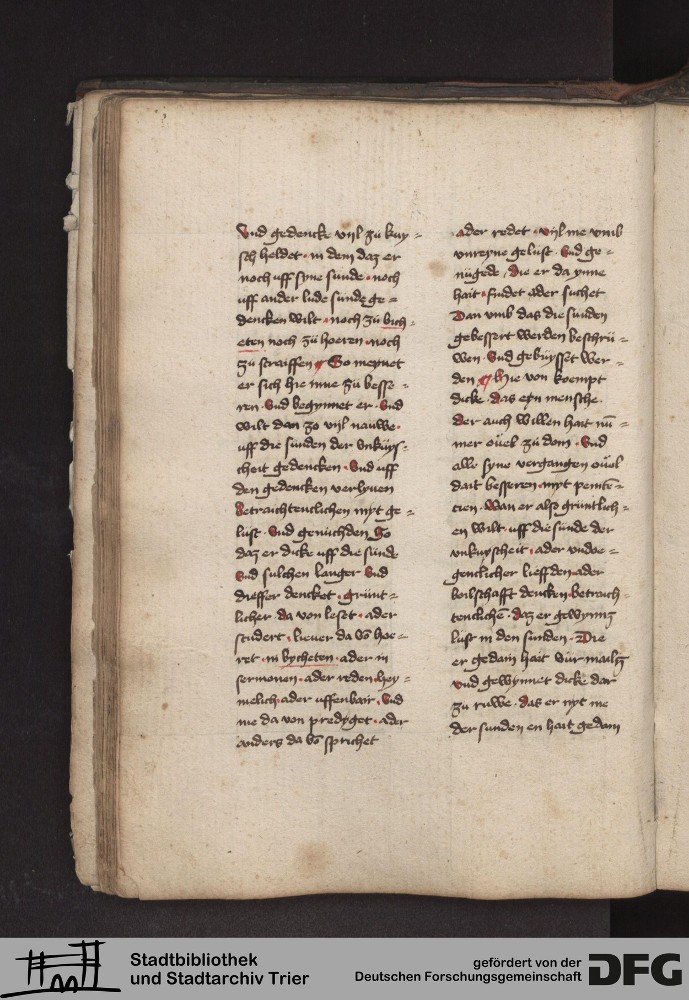 Vnd gedencke vijl zu kuy=
sch heldet · in dem daz er
noch uff syne sunde · noch
uff ander lude sunde ge=
dencken wilt · noch zu bich=
eten noch zu hoeren · noch
zu screiffen ¶ So meynet
er sich hie inne zu besse=
ren · Vnd begynnet er · Vnd
wilt dan zo vijl nauwe ·
uff die sunden der vnkuys=
cheit gedencken · Vnd uff
den gedencken verlyuen
betraichtenclichen myt ge=
lust · Vnd genuchden So
daz er dicke uff die sunde
Vnd sulchen langer Vnd
dieffer dencket · grunt=
licher da von leset · ader
studert · lieuer da vō hoe=
ret · in bycheten · ader in
sermonen · ader reden hey=
melich ader uffenbair · Vnd
me da von prediget · ader
anders da vō sprichet
ader redet · vijl me vmb
vnreyne gelust · Vnd ge=
nugede, die er da ynne
hait · findet ader suchet
Dan vmb das die sunden
gebessert werden beschru=
wen · Vnd gebuysset wer=
den ¶ Hie von koempt
dicke · das eyn mensche ·
der auch willen hait nū=
mer ouel zu doin · Vnd
alle syne vergangen ouel
dait besseren · myt penitē=
cien · Wan er also gruntlich=
en wilt · uff die sunde der
vnkuyscheit · ader vndoe=
gentlicher lieffden ader
boilschafft dencken betraich=
tenclichē · daz er gewynnz
lust in den sunden · Die
er gedain hait vur mailz
vnd gewynnet dicke dar
zu ruwe · das er nyt me
der sunden en hait gedain
Stadtbibliothek
und Stadtarchiv Trier
gefördert von der
Deutschen Forschungsgemeinschaft
DFG